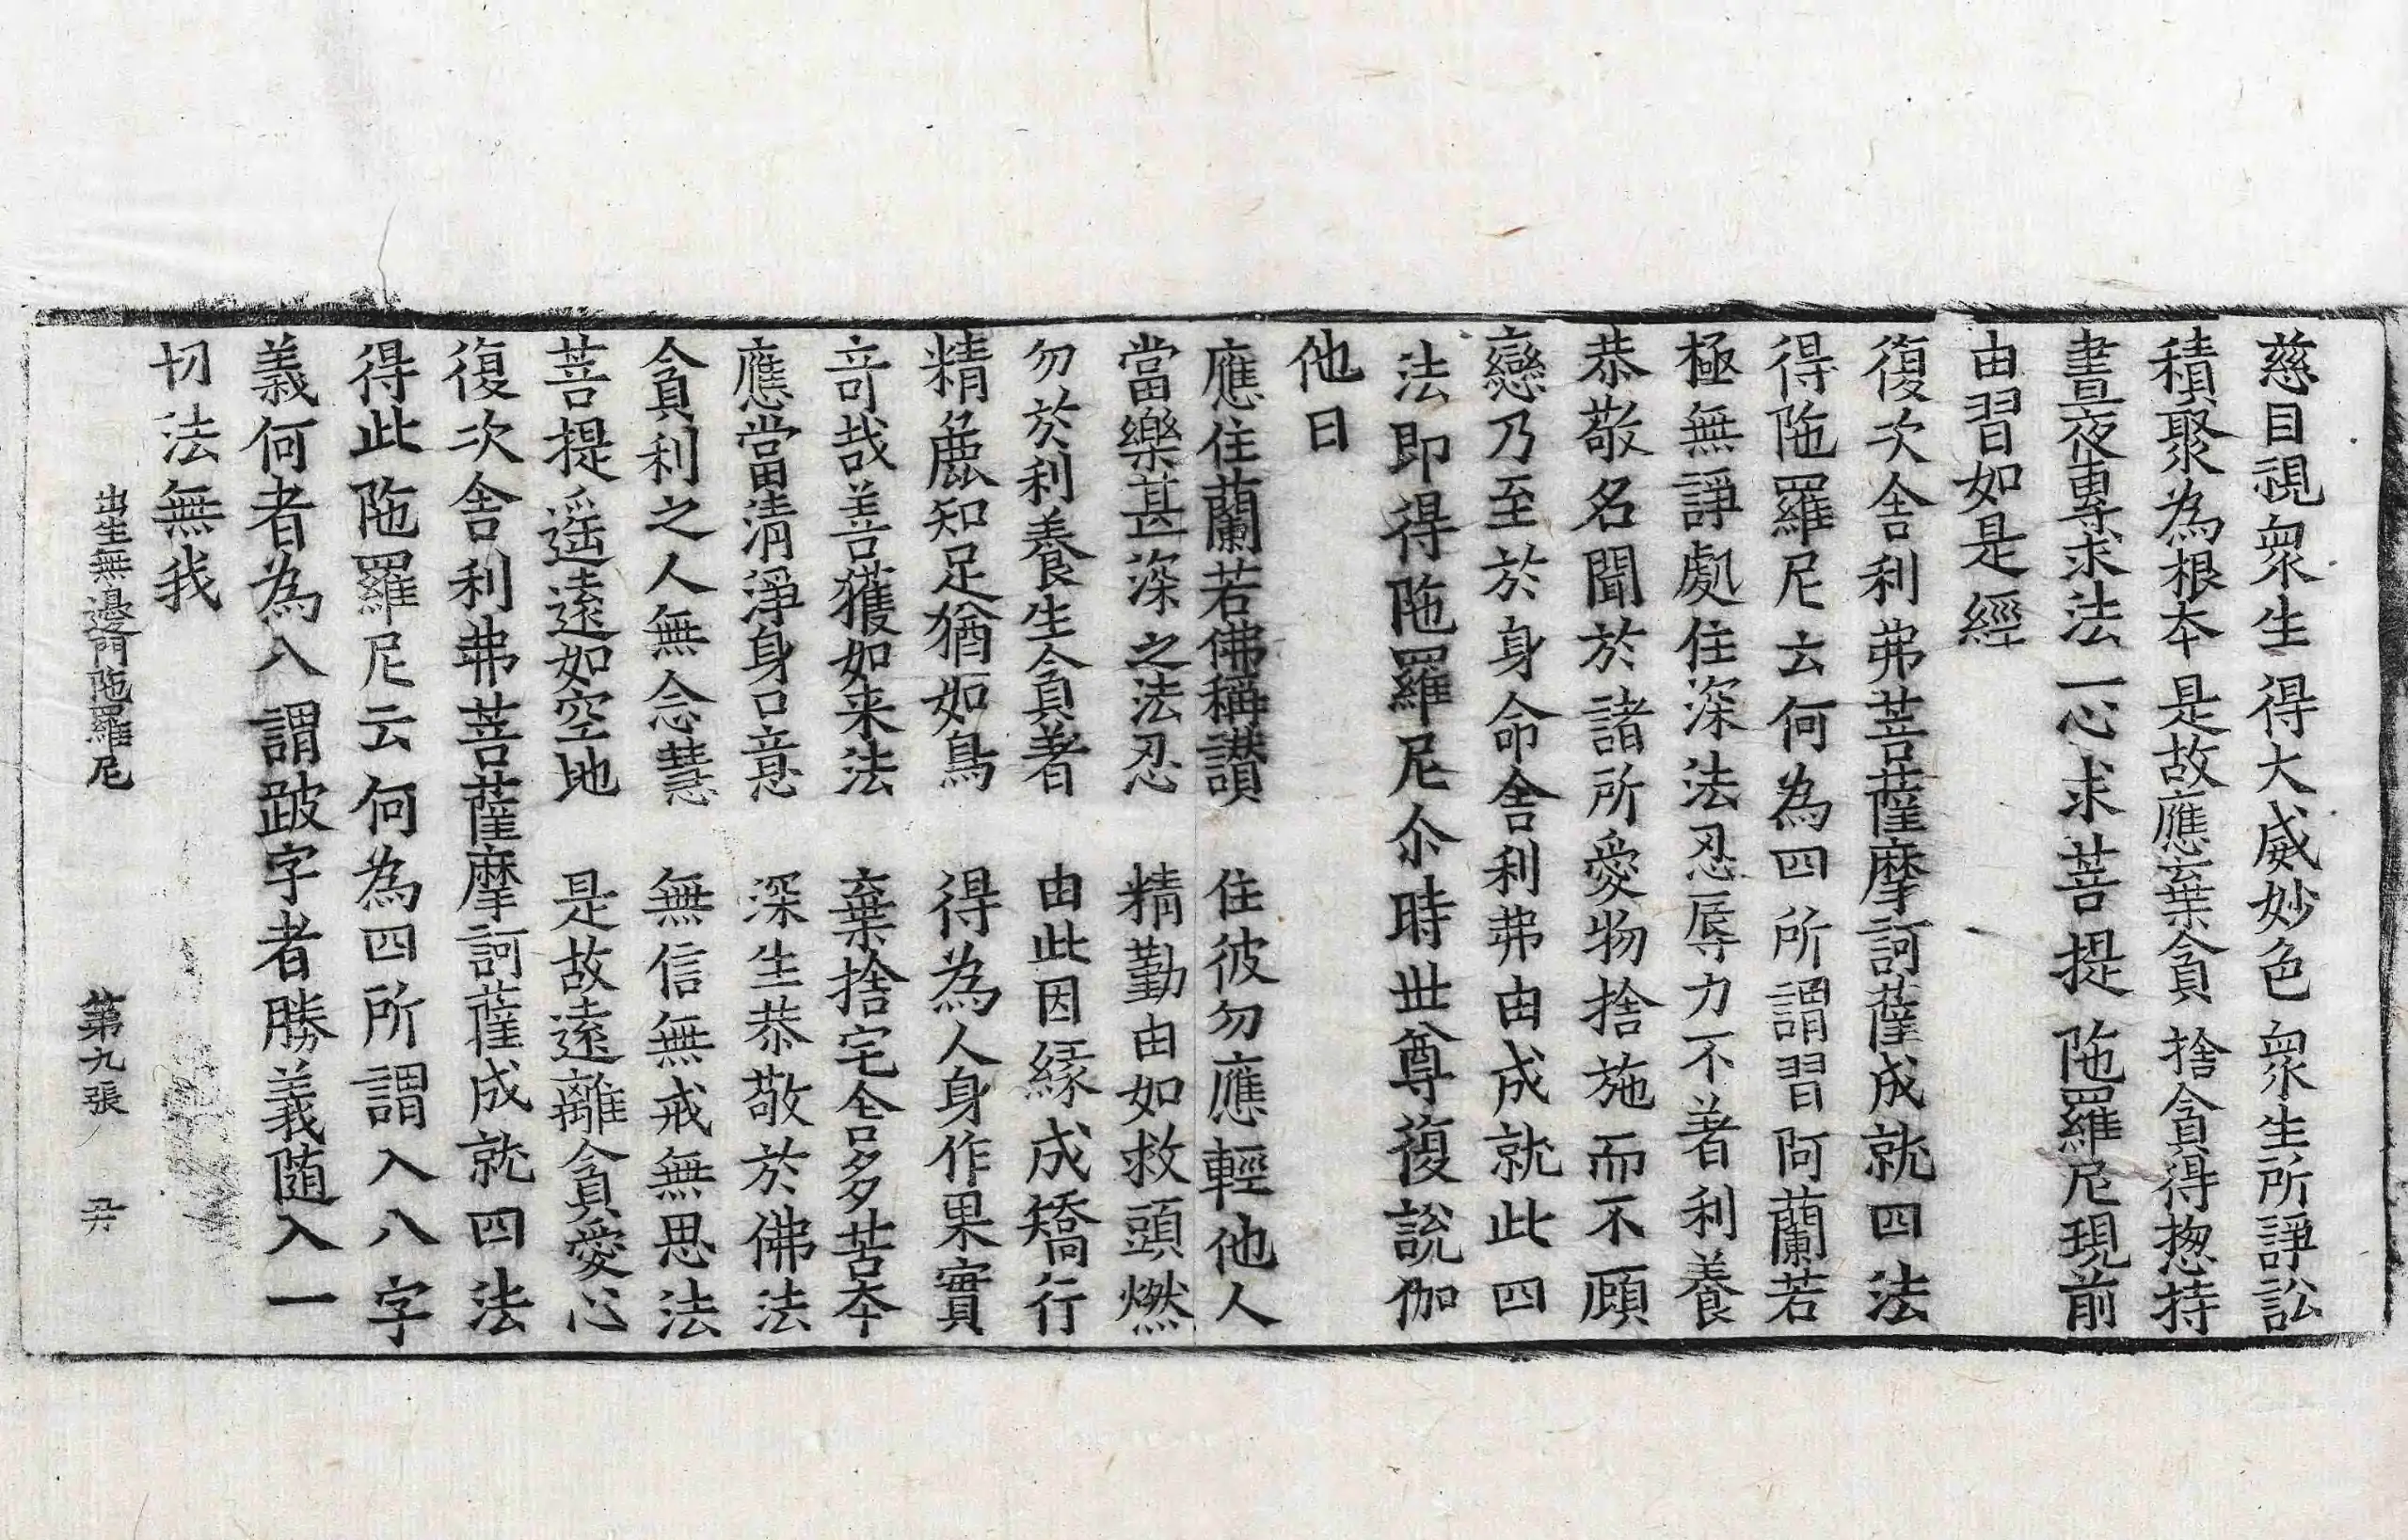 慈目視衆生 得大威妙色 衆生所諍訟
積聚為根本 是故應棄貪 捨貪得揔持
晝夜專求法 一心求菩提 陁羅尼現前
由習如是經
復次舍利弗菩薩摩訶薩成就四法
得陁羅尼云何為四所謂習阿蘭若
極無諍處住深法忍辱力不著利養
恭敬名聞於諸所愛物捨施而不顧
戀乃至於身命舍利弗由成就此四
法即得陁羅尼尒時世尊復說伽
他曰
應住蘭若佛稱讚 住彼勿應輕他人
當樂甚深之法忍 精勤由如救頭燃
勿於利養生貪著 由此因緣成矯行
精麁知足猶如鳥 得為人身作果實
竒哉善獲如来法 棄捨宅舍多苦本
應當清淨身口意 深生恭敬於佛法
貪利之人無念慧 無信無戒無思法
菩提遥遠如空地 是故遠離貪愛心
復次舍利弗菩薩摩訶薩成就四法
得此陁羅尼云何為四所謂入八字
義何者為八謂跛字者勝義随入一
切法無我
出生無邊門陁羅尼 第九張